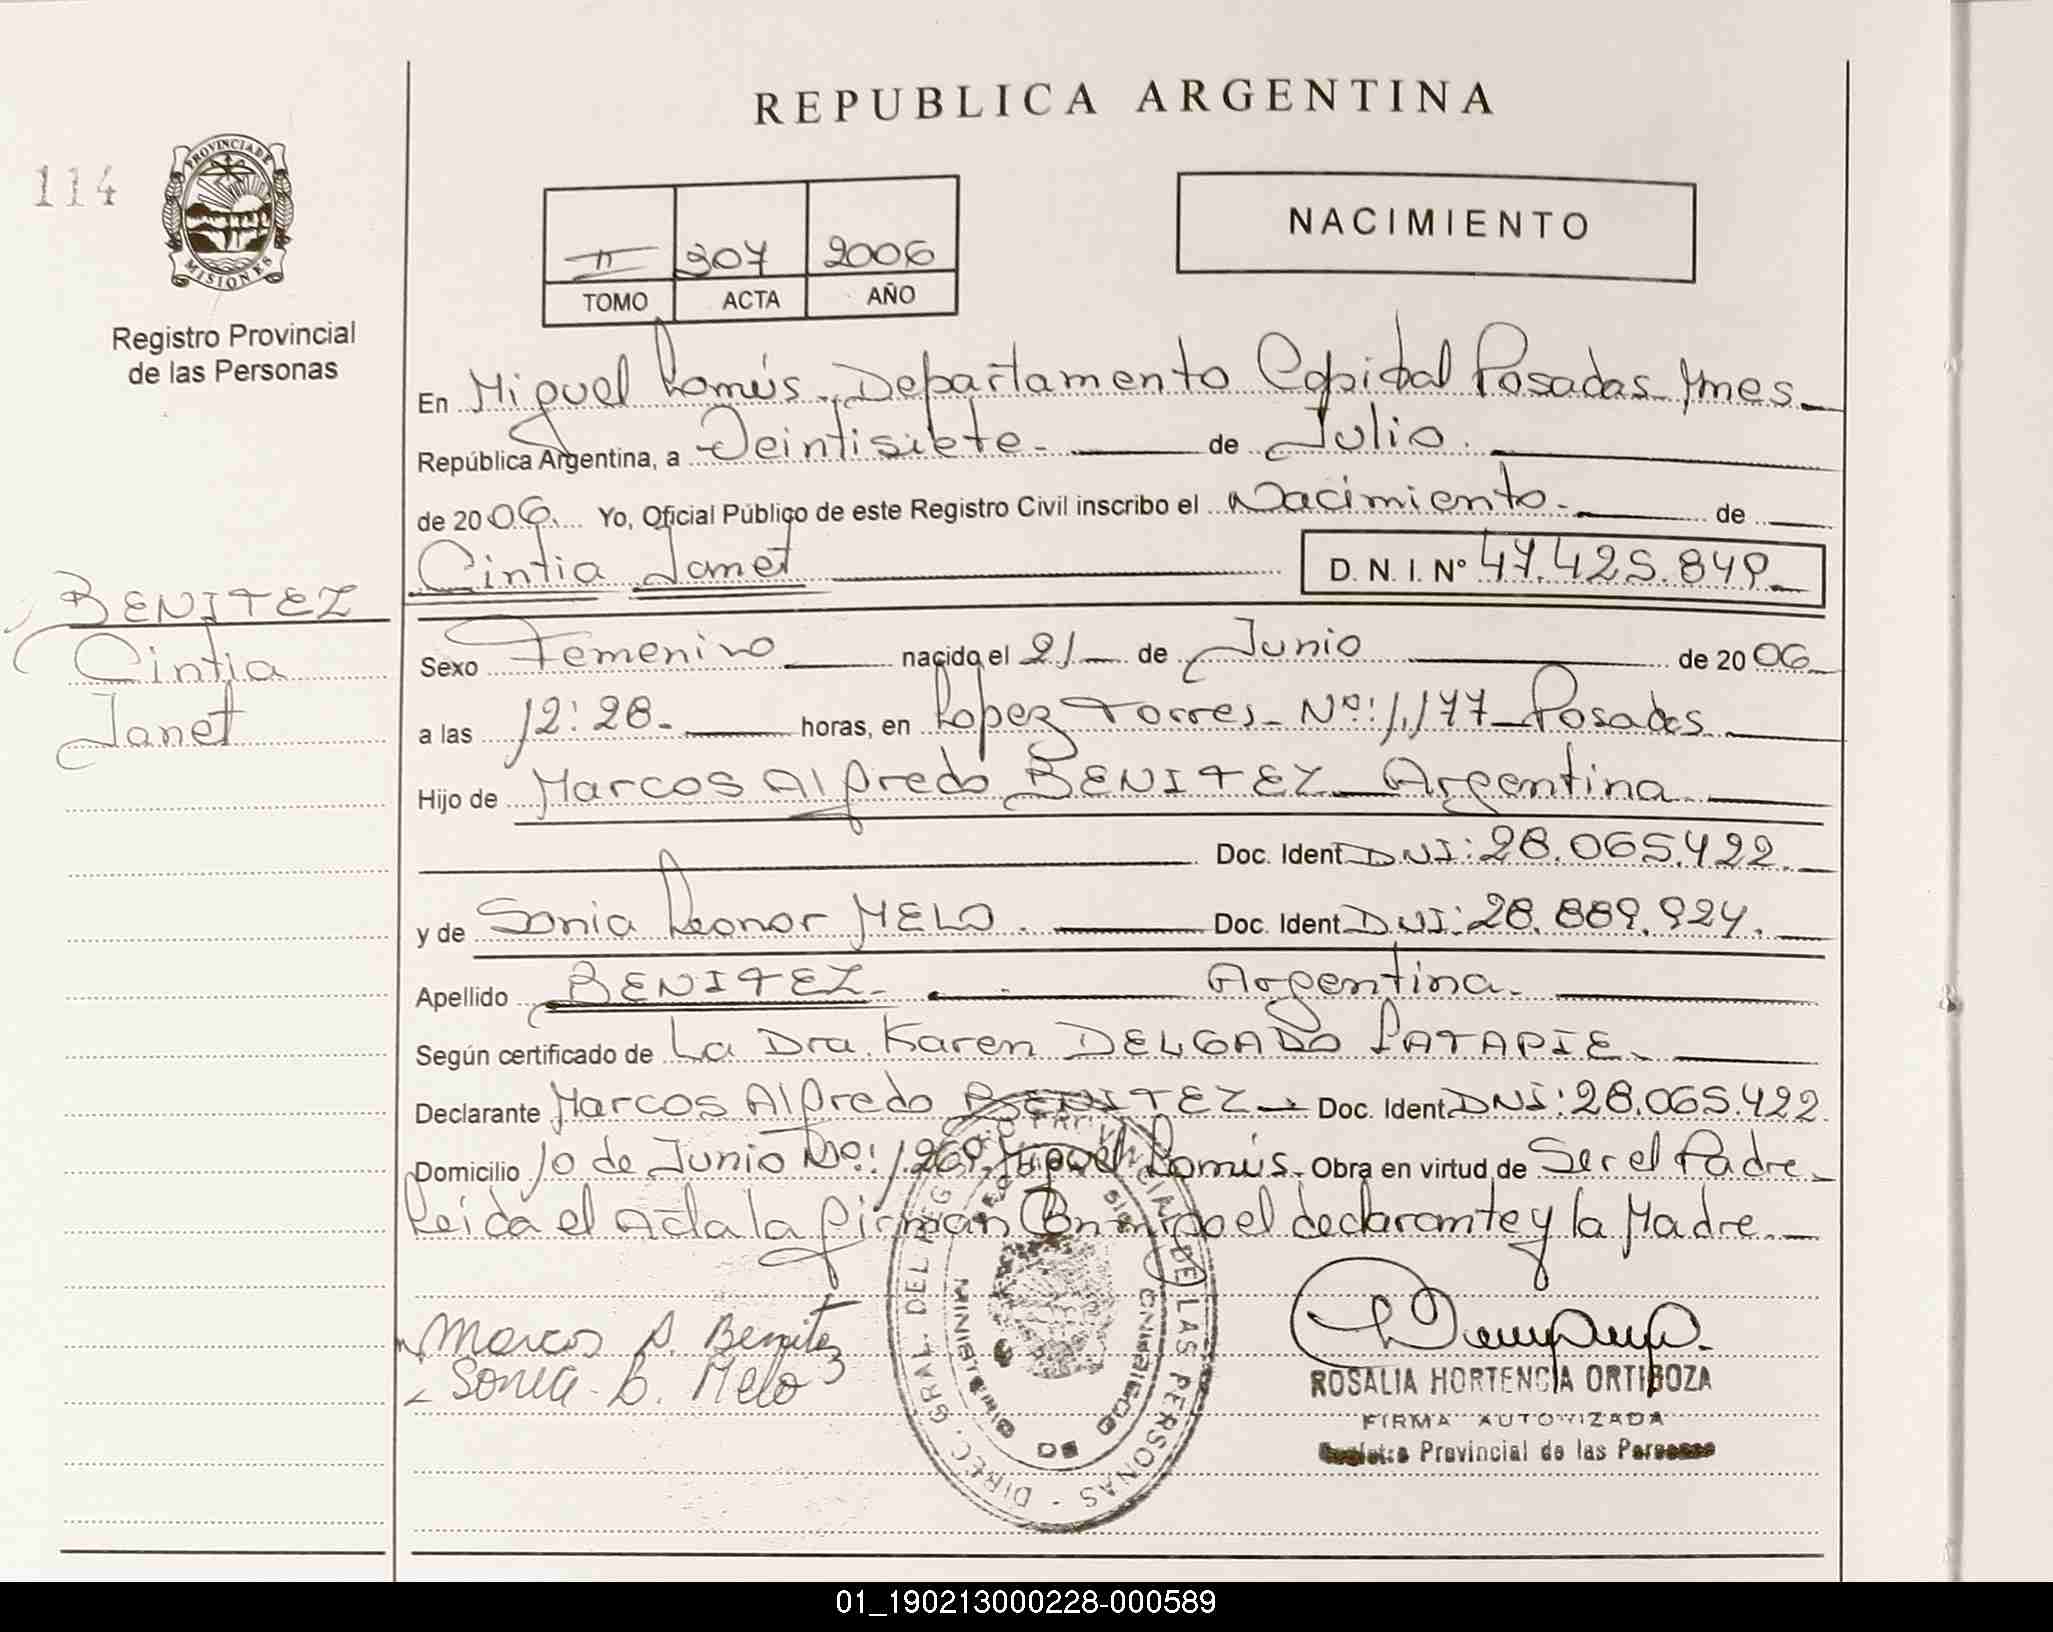 REPUBLICA ARGENTINA
114
PROVINCIA DE
MISIONES
Registro Provincial
de las Personas
NACIMIENTO
II 307 2006
TOMO ACTA AÑO
En Miguel Lanús - Departamento Capital Posadas Mnes
República Argentina, a Veintisiete - de Julio.
de 2006. Yo, Oficial Público de este Registro Civil inscribo el Nacimiento - de
Cintia Janet D. N. I. Nº 47.425.849
BENITEZ
Cintia
Janet
Sexo Femenino nacido el 21 de Junio de 2006
a las 12:28 - horas, en Lopez Torres - Nº: 1.177 - Posadas
Hijo de Marcos Alfredo BENITEZ - Argentina
Doc. Ident DNI: 28.065.422.
y de Sonia Leonor MELO. Doc. Ident DNI: 28.889.924.
Apellido BENITEZ - Argentina -
Según certificado de La Dra. Karen DELGADO
Declarante Marcos Alfredo BENITEZ - Doc. Ident DNI: 28.065.422
Domicilio 10 de Junio Nº: 1.269, Miguel Lanús. Obra en virtud de Ser el Padre -
Leida el Acta la firman Conmigo el declarante y la Madre. -
Marcos A. Benitez
Sonia L. Melo
DIREC. GRAL. DEL REG DE LAS PERSONAS
ROSALIA HORTENCIA ORTIGOZA
FIRMA AUTORIZADA
Registro Provincial de las Personas
01_190213000228-000589